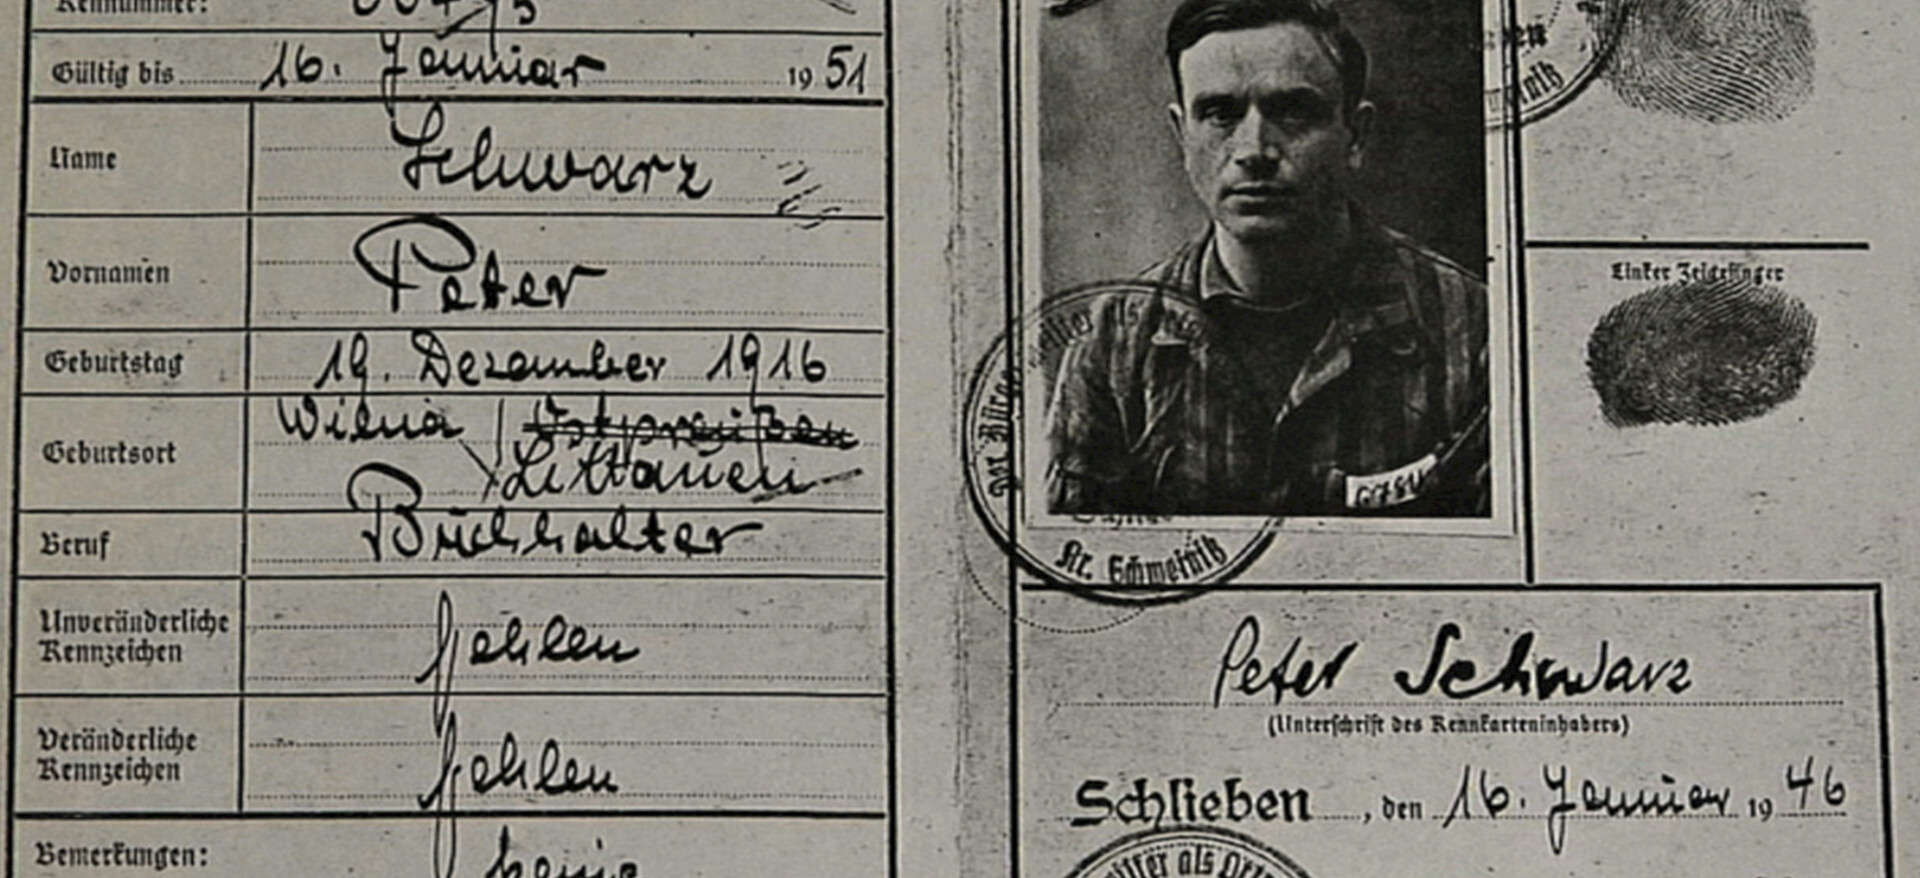 Kennummer:
Gültig bis 16. Januar 1951
Name Schwarz
Vornamen Peter
Geburtstag 19. Dezember 1916
Geburtsort Wilna / Ostpreußen
Littauen
Beruf Buchhalter
Unveränderliche
Kennzeichen fehlen
Veränderliche
Kennzeichen fehlen
Bemerkungen: keine
Linker Zeigefinger
Kr. Schweinitz
Peter Schwarz
(Unterschrift des Kennkarteninhabers)
Schlieben, den 16. Januar 1946